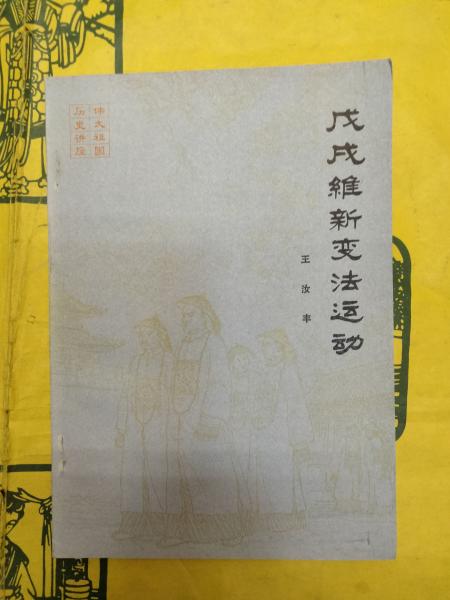 戊戌維新变法运动
王汝丰
伟大祖国
历史讲座